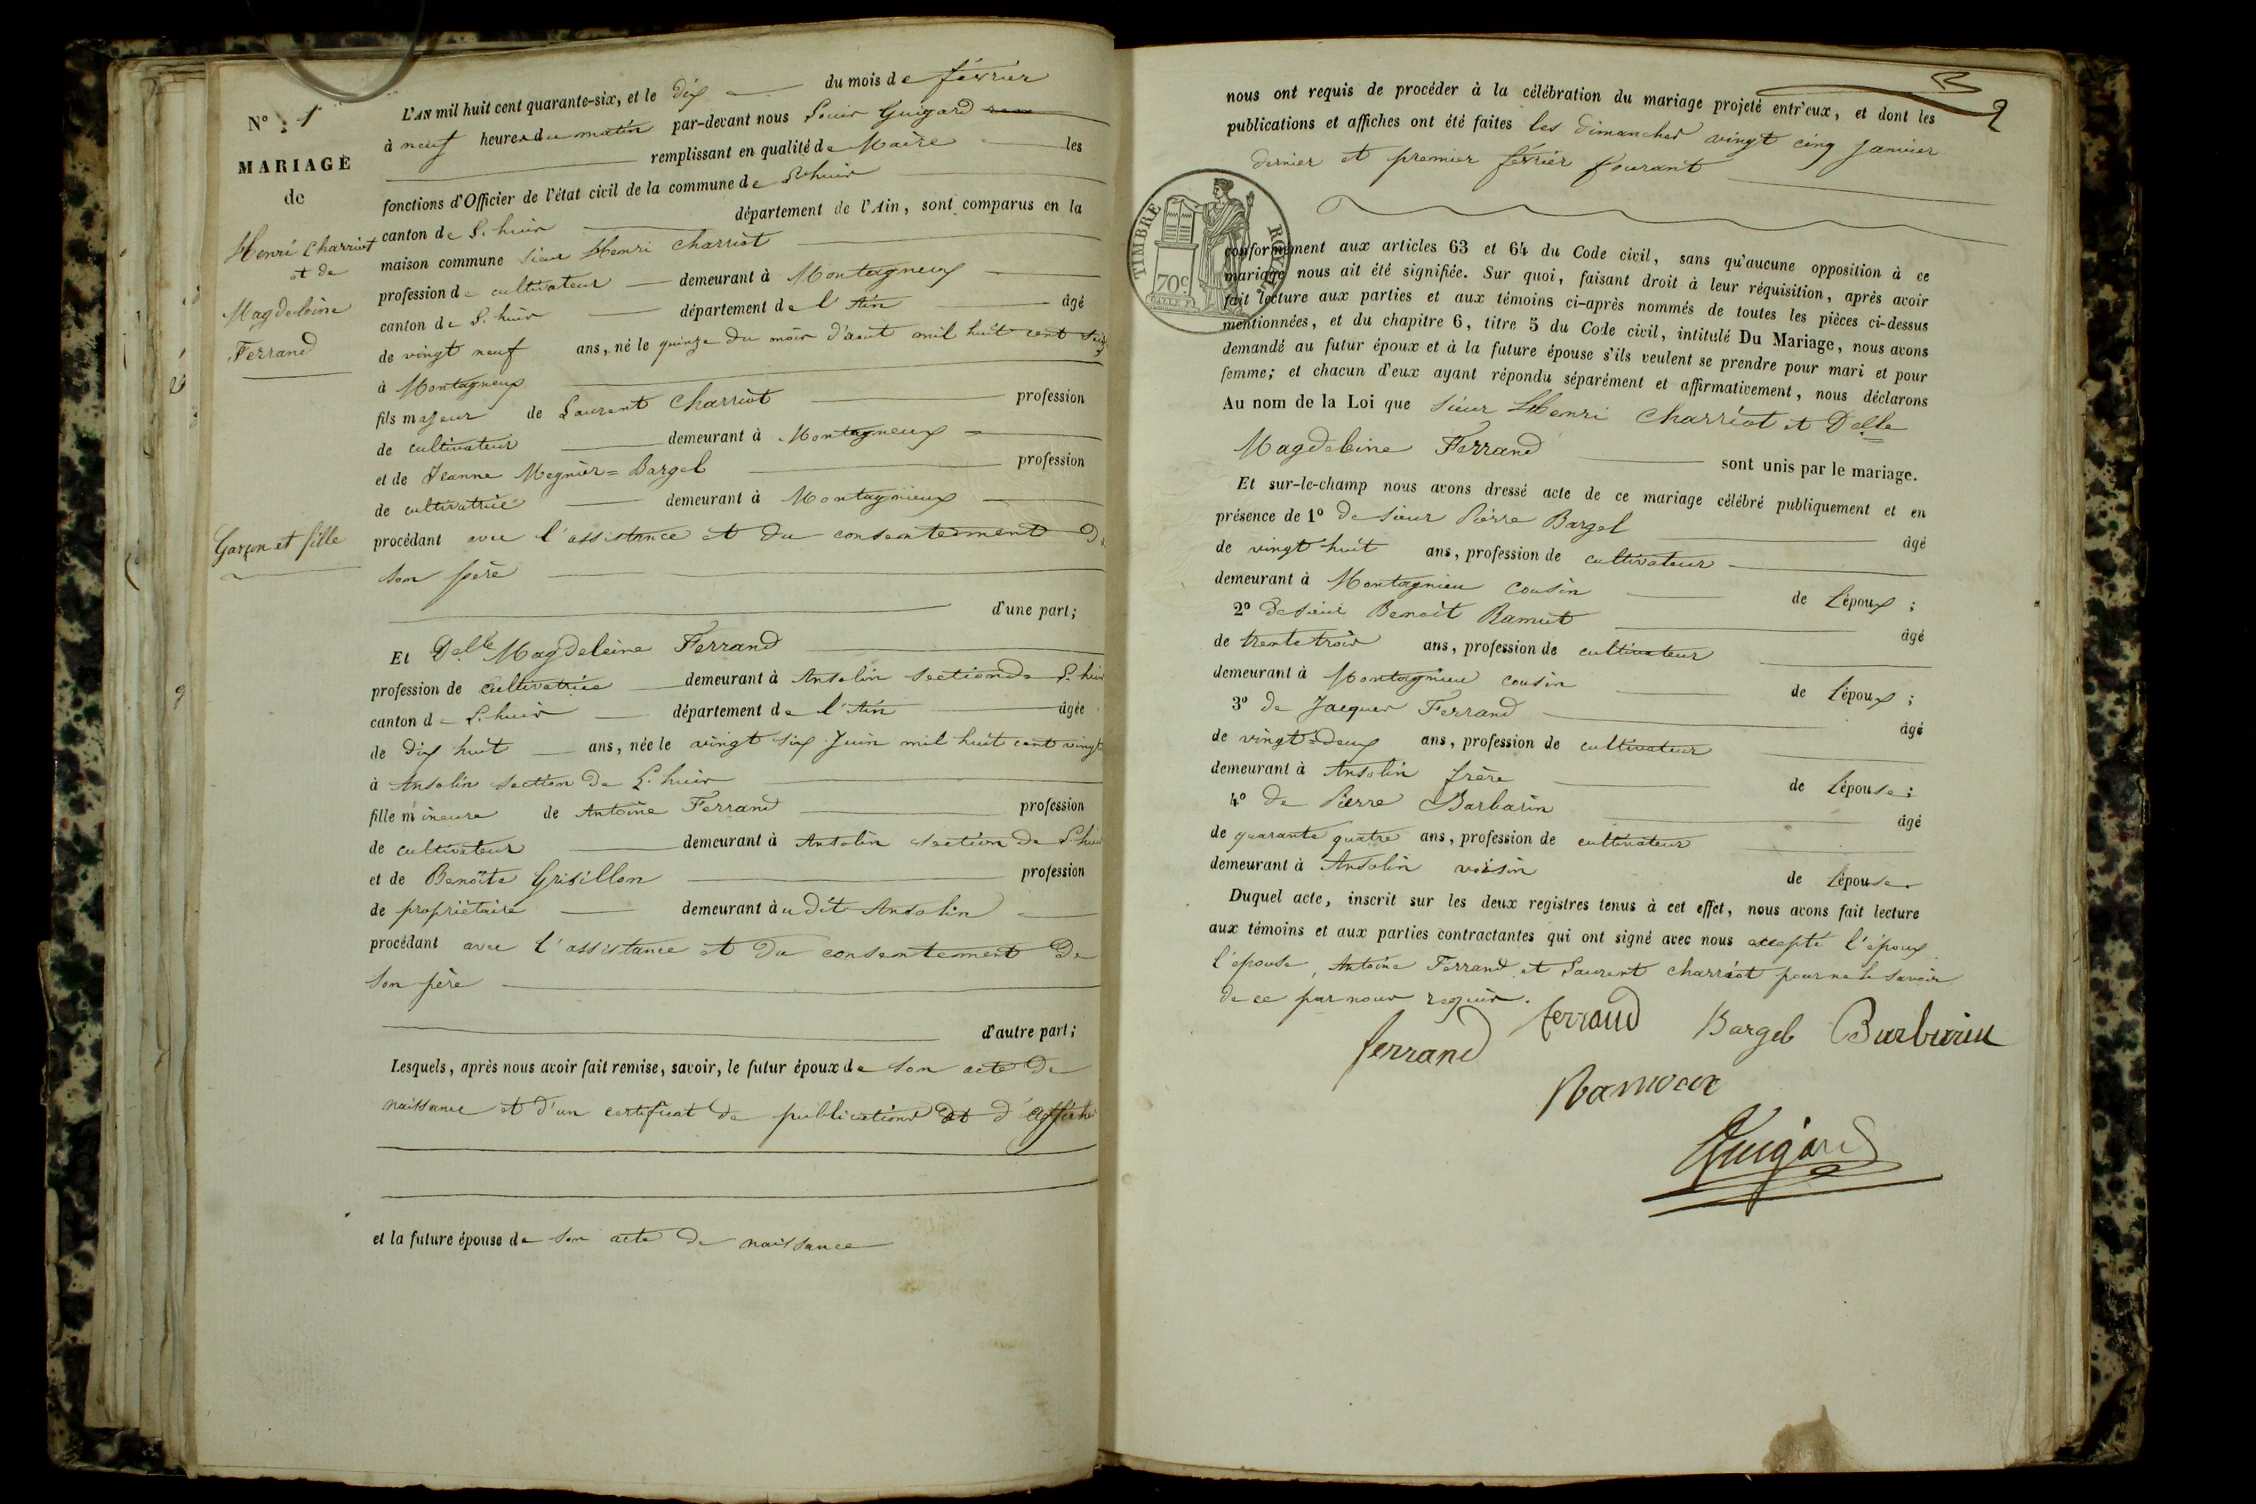 N° 1
MARIAGE
de
Henri Charriot
et de
Magdeleine
Ferrand
Garçon et fille
L'AN mil huit cent quarante-six, et le dix du mois de février
à neuf heures du matin par-devant nous Louis Guigard
remplissant en qualité de Maire les
fonctions d'Officier de l'état civil de la commune de Lhuis
canton de Lhuis département de l'Ain, sont comparus en la
maison commune sieur Henri Charriot
profession de cultivateur demeurant à Montagneux
canton de Lhuis département de l'Ain âgé
de vingt neuf ans, né le quinze du mois d'aout mil huit cent seize
à Montagneux
fils majeur de Laurent Charriot profession
de cultivateur demeurant à Montagneux
et de Jeanne Megnier = Bargel profession
de cultivatrice demeurant à Montagnieux
procédant avec l'assistance et du consentement de
son père
d'une part;
Et Delle Magdeleine Ferrand
profession de cultivatrice demeurant à Ansolin section de Lhuis
canton de Lhuis département de l'Ain âgée
de dix huit ans, née le vingt six Juin mil huit cent vingt
à Ansolin section de Lhuis
fille mineure de Antoine Ferrand profession
de cultivateur demeurant à Ansolin section de Lhuis
et de Benoîte Grisillon profession
de propriétaire demeurant audit Ansolin
procédant avec l'assistance et du consentement de
son père
d'autre part;
Lesquels, après nous avoir fait remise, savoir, le futur époux de son acte de
naissance et d'un certificat de publications et d'affiche
et la future épouse de son acte de naissance
2
nous ont requis de procéder à la célébration du mariage projeté entr'eux, et dont les
publications et affiches ont été faites les dimanches vingt cinq Janvier
dernier et premier février courant
TIMBRE ROYAL
70c
conformément aux articles 63 et 64 du Code civil, sans qu'aucune opposition à ce
mariage nous ait été signifiée. Sur quoi, faisant droit à leur réquisition, après avoir
fait lecture aux parties et aux témoins ci-après nommés de toutes les pièces ci-dessus
mentionnées, et du chapitre 6, titre 5 du Code civil, intitulé Du Mariage, nous avons
demandé au futur époux et à la future épouse s'ils veulent se prendre pour mari et pour
femme; et chacun d'eux ayant répondu séparément et affirmativement, nous déclarons
Au nom de la Loi que sieur Henri Charriot et Delle
Magdeleine Ferrand sont unis par le mariage.
Et sur-le-champ nous avons dressé acte de ce mariage célébré publiquement et en
présence de 1° de sieur Pierre Bargel âgé
de vingt huit ans, profession de cultivateur
demeurant à Montagnieu cousin de l'époux;
2° de sieur Benoit Ramut âgé
de trente trois ans, profession de cultivateur
demeurant à Montagnieu cousin de l'époux;
3° de Jacques Ferrand âgé
de vingt=deux ans, profession de cultivateur
demeurant à Ansolin frère de l'épouse;
4° de Pierre Barbarin âgé
de quarante quatre ans, profession de cultivateur
demeurant à Ansolin voisin de l'épouse.
Duquel acte, inscrit sur les deux registres tenus à cet effet, nous avons fait lecture
aux témoins et aux parties contractantes qui ont signé avec nous excepté l'époux
l'épouse, Antoine Ferrand et Laurent Charriot pour ne le savoir
de ce par nous requis.
ferrand ferraud Bargel Barbarin
Guigard